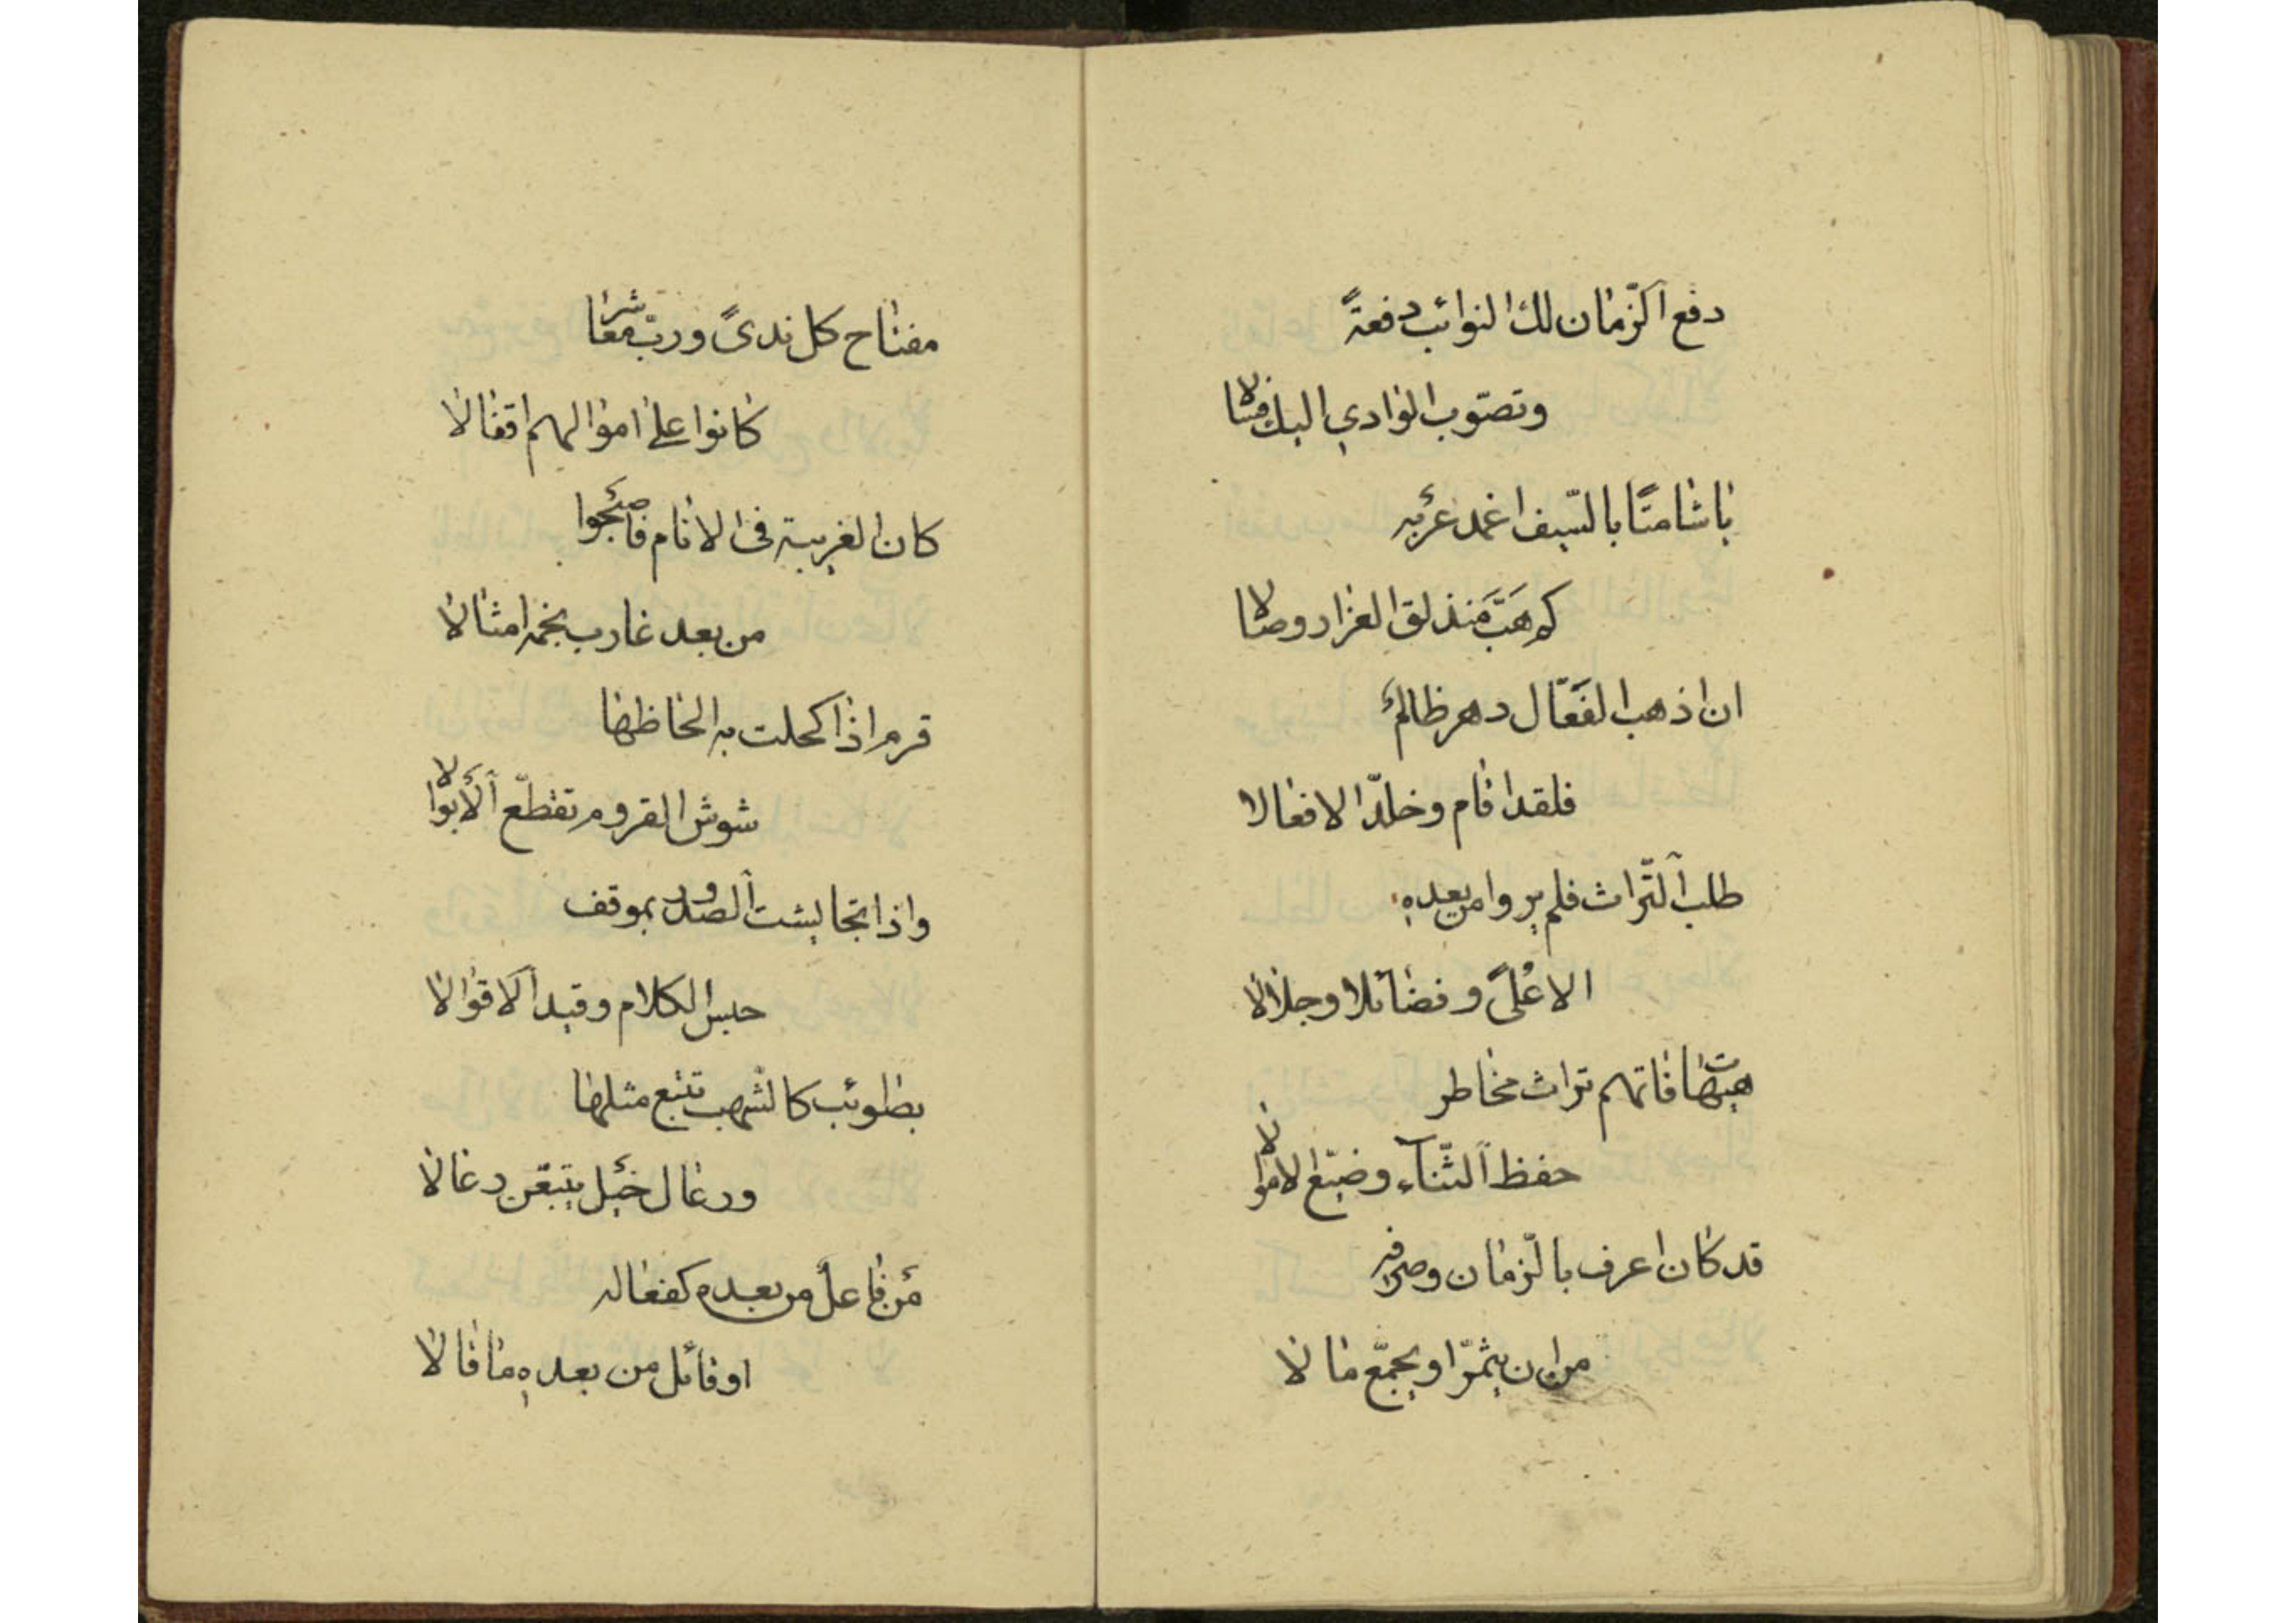 دفع ٱلزّمان لك النوائب دفعةً
وتصوّب الوادي اليك فسالا
يا شامتًا بالسّيف اغمد غربه
كم هبّ مندلق الغرار وصالا
ان اذهب الفعّال دهر ظالمٌ
فلقد اقام وخلّد الافعالا
طلب ٱلتّراث فلم يروا من بعده
الا عُلىً وفضائلا وجلالا
هيهات فاتهم تراث مخاطر
حفظ ٱلثّناۤء وضيّع الاموالا
قد كان اعرف بالزّمان وصرفه
من ان يثمّر او يجمّع مالا
مفتاح كل ندىً وربّ معاشر
كانوا على اموالهم اقفالا
كان الغريبة فى الانام فاصبحوا
من بعد غارب نجمه امثالا
قرم اذا كحلت به الحاظها
شوش القروم تقطّع ٱلابوالا
واذا تجايشت ٱلصدور بموقف
حبس الكلام وقيد ٱلاقوالا
بطوئب كالشهب تتبع مثلها
ورعال خيل يتبعن رعالا
من فاعل من بعده كفعاله
او قائل من بعده ما قالا